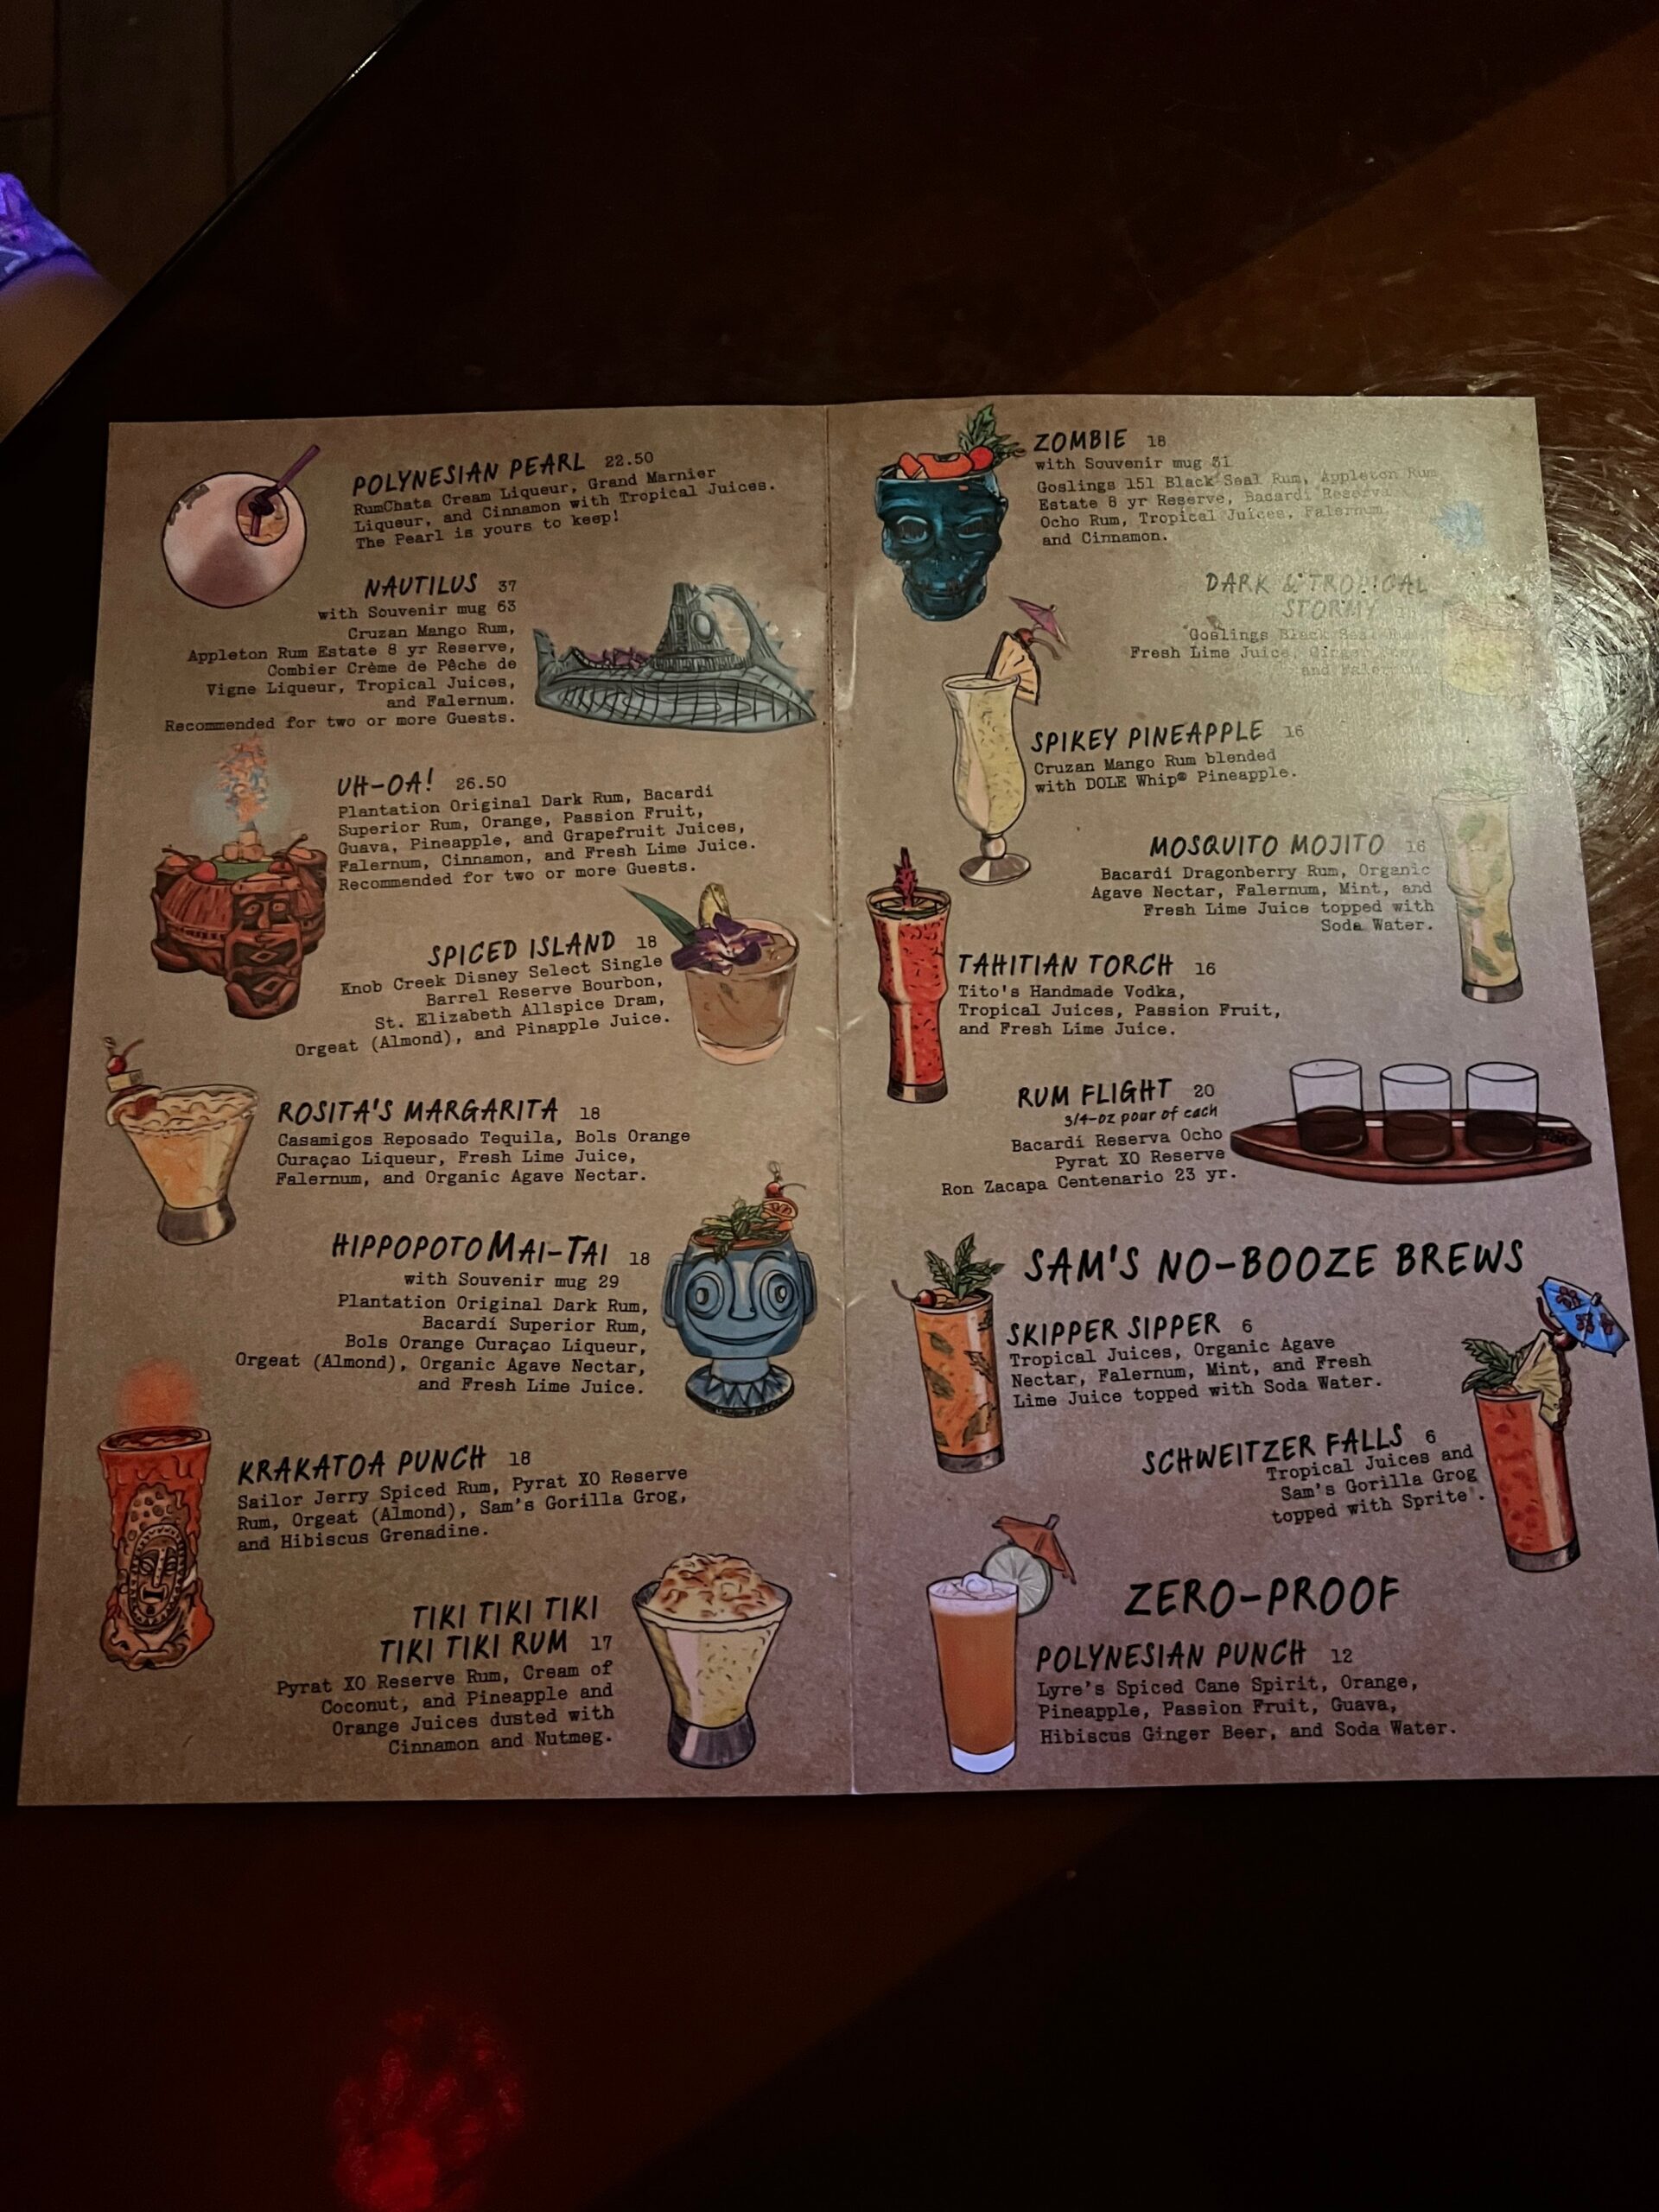 POLYNESIAN PEARL 22.50
RumChata Cream Liqueur, Grand Marnier
Liqueur, and Cinnamon with Tropical Juices.
The Pearl is yours to keep!
NAUTILUS 37
with Souvenir mug 63
Cruzan Mango Rum,
Appleton Rum Estate 8 yr Reserve,
Combier Crème de Pêche de
Vigne Liqueur, Tropical Juices,
and Falernum.
Recommended for two or more Guests.
UH-OA! 26.50
Plantation Original Dark Rum, Bacardi
Superior Rum, Orange, Passion Fruit,
Guava, Pineapple, and Grapefruit Juices,
Falernum, Cinnamon, and Fresh Lime Juice.
Recommended for two or more Guests.
SPICED ISLAND 18
Knob Creek Disney Select Single
Barrel Reserve Bourbon,
St. Elizabeth Allspice Dram,
Orgeat (Almond), and Pinapple Juice.
ROSITA'S MARGARITA 18
Casamigos Reposado Tequila, Bols Orange
Curaçao Liqueur, Fresh Lime Juice,
Falernum, and Organic Agave Nectar.
HIPPOPOTOMAI-TAI 18
with Souvenir mug 29
Plantation Original Dark Rum,
Bacardí Superior Rum,
Bols Orange Curaçao Liqueur,
Orgeat (Almond), Organic Agave Nectar,
and Fresh Lime Juice.
KRAKATOA PUNCH 18
Sailor Jerry Spiced Rum, Pyrat XO Reserve
Rum, Orgeat (Almond), Sam's Gorilla Grog,
and Hibiscus Grenadine.
TIKI TIKI TIKI
TIKI TIKI RUM 17
Pyrat XO Reserve Rum, Cream of
Coconut, and Pineapple and
Orange Juices dusted with
Cinnamon and Nutmeg.
ZOMBIE 18
with Souvenir mug 31
Goslings 151 Black Seal Rum, Appleton Rum
Estate 8 yr Reserve, Bacardi Reserva
Ocho Rum, Tropical Juices, Falernum,
and Cinnamon.
DARK & TROPICAL
STORMY
Goslings Black Seal Rum,
Fresh Lime Juice, Ginger
and Falernum.
SPIKEY PINEAPPLE 16
Cruzan Mango Rum blended
with DOLE Whip® Pineapple.
MOSQUITO MOJITO 16
Bacardi Dragonberry Rum, Organic
Agave Nectar, Falernum, Mint, and
Fresh Lime Juice topped with
Soda Water.
TAHITIAN TORCH 16
Tito's Handmade Vodka,
Tropical Juices, Passion Fruit,
and Fresh Lime Juice.
RUM FLIGHT 20
3/4-oz pour of each
Bacardi Reserva Ocho
Pyrat XO Reserve
Ron Zacapa Centenario 23 yr.
SAM'S NO-BOOZE BREWS
SKIPPER SIPPER 6
Tropical Juices, Organic Agave
Nectar, Falernum, Mint, and Fresh
Lime Juice topped with Soda Water.
SCHWEITZER FALLS 6
Tropical Juices and
Sam's Gorilla Grog
topped with Sprite®.
ZERO-PROOF
POLYNESIAN PUNCH 12
Lyre's Spiced Cane Spirit, Orange,
Pineapple, Passion Fruit, Guava,
Hibiscus Ginger Beer, and Soda Water.